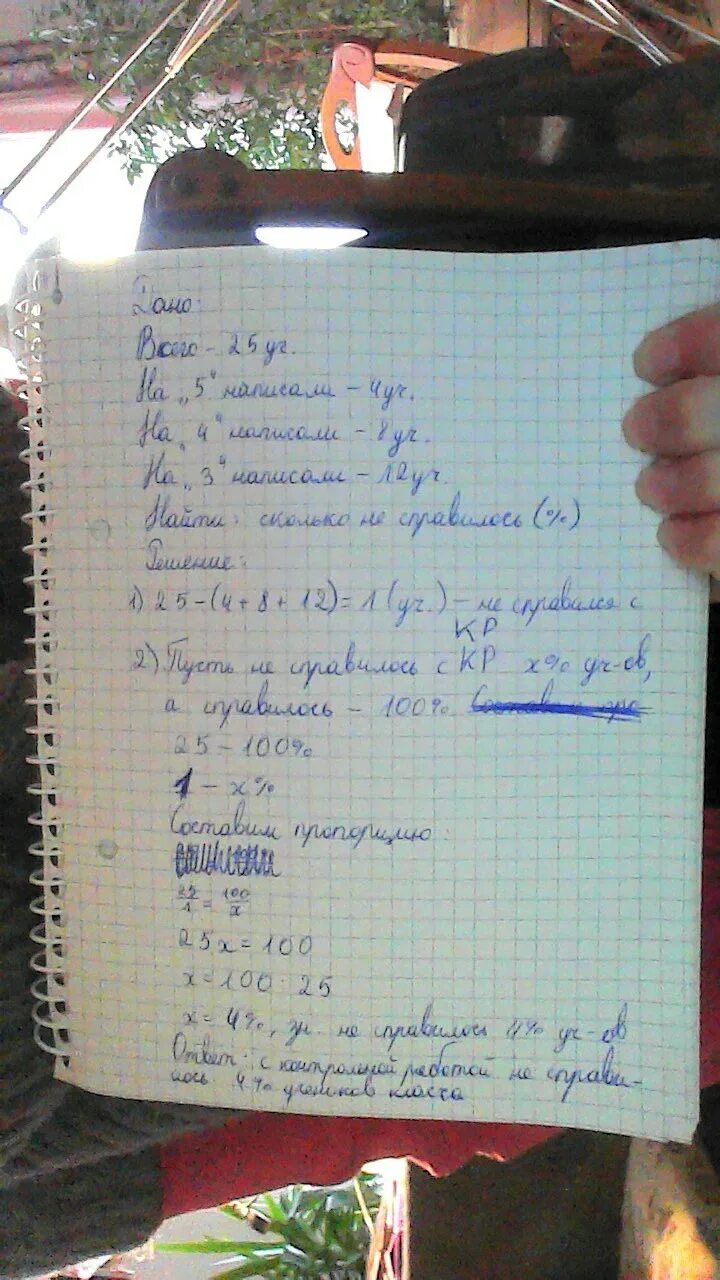 Дано:
Всего - 25 уч.
На „5“ написали - 4уч.
На „4“ написали - 8 уч.
На „3“ написали - 12 уч.
Найти: сколько не справилось (%)
Решение:
1) 25-(4+8+12)=1(уч.) - не справился с
КР
2) Пусть не справилось с КР x% уч-ов,
а справилось - 100%
25 - 100%
1 - x%
Составим пропорцию:
25/1 = 100/x
25x = 100
x = 100 : 25
x = 4%, зн. не справилось 4% уч-ов
Ответ: с контрольной работой не справи-
лось 4% учеников класса